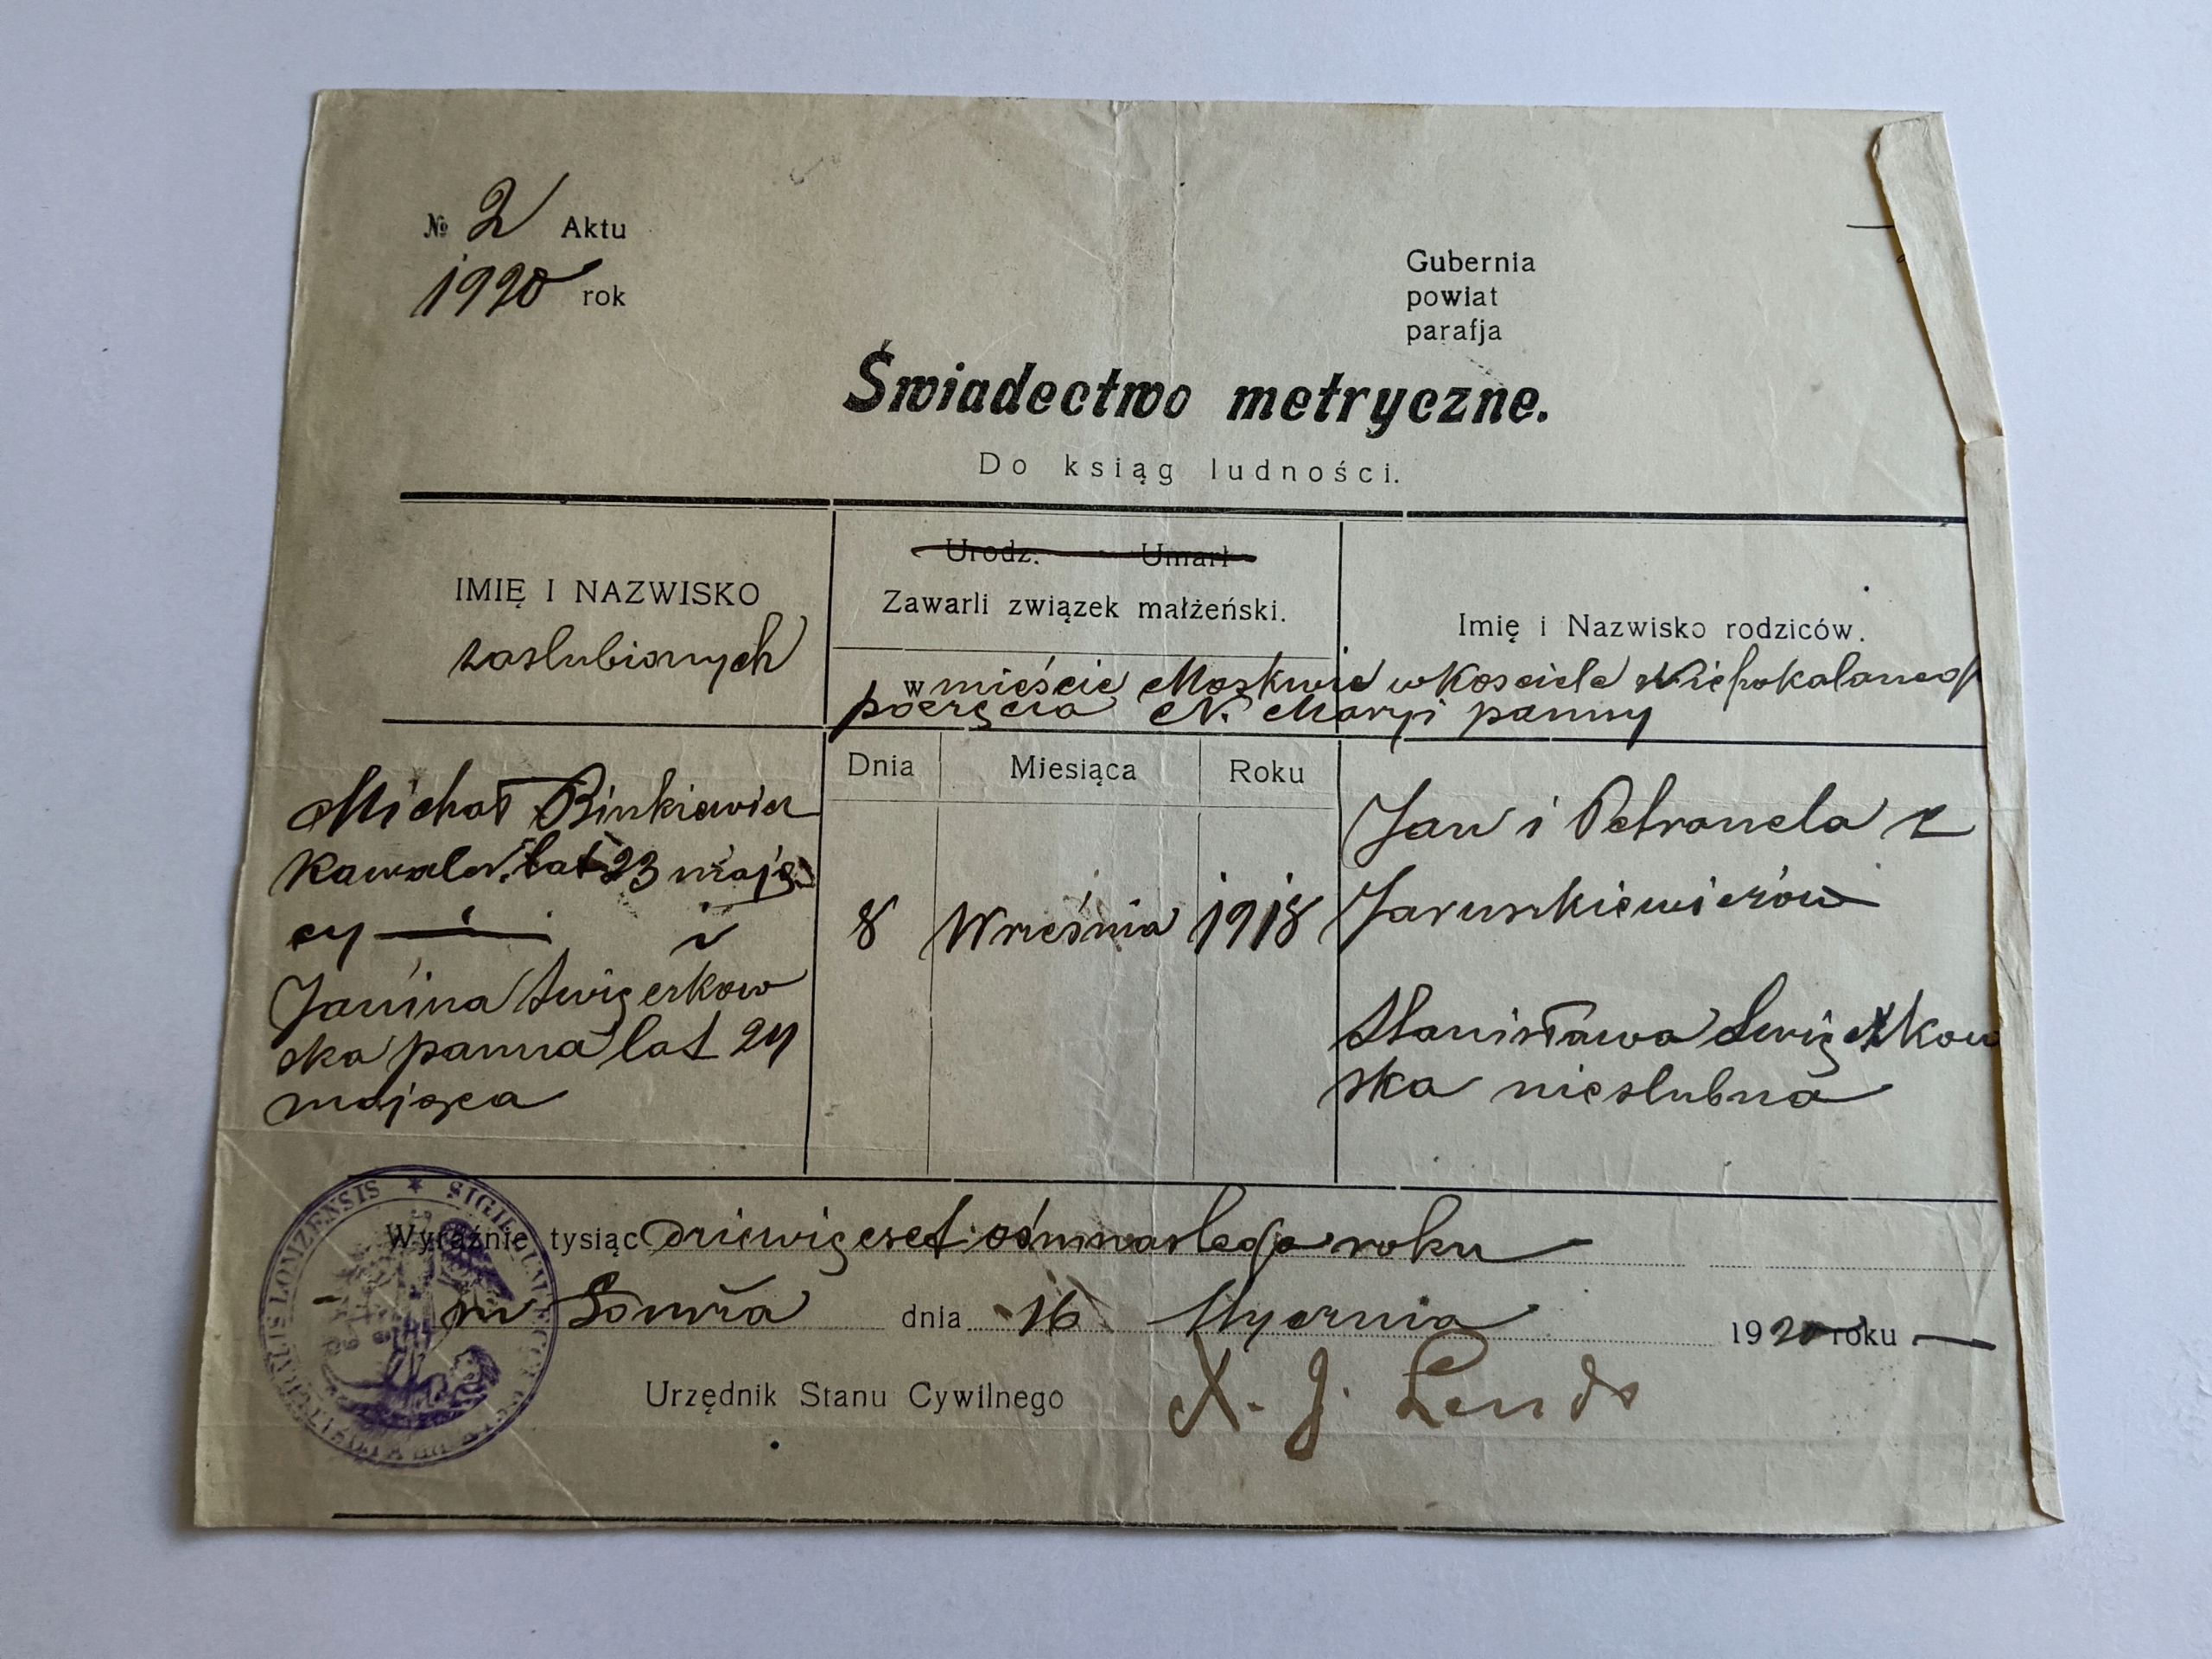 № 2 Aktu
1920 rok
Gubernia
powiat
parafja
Świadectwo metryczne.
Do ksiąg ludności.
IMIĘ I NAZWISKO
zaslubionych
Urodz. Umarł
Zawarli związek małżeński.
Imię i Nazwisko rodziców.
w mieście Moskwie w Kosciele Niepokalanego
poczęcia N. Maryi panny
Dnia Miesiąca Roku
Michał Binkiewicz
Kawaler lat 23 mają
cy i
Janina Swięerkow
ska panna lat 24
mająca
8 Września 1918
Jan i Petronela z
Jaruszkiewiczów
Stanisława
ska nieslubna
Wyraźnie tysiąc dziewięcset osmnastego roku
m Łomża dnia 16 Stycznia 1920 roku
Urzędnik Stanu Cywilnego
X. J.
SIGILLUM
LOMZENSIS